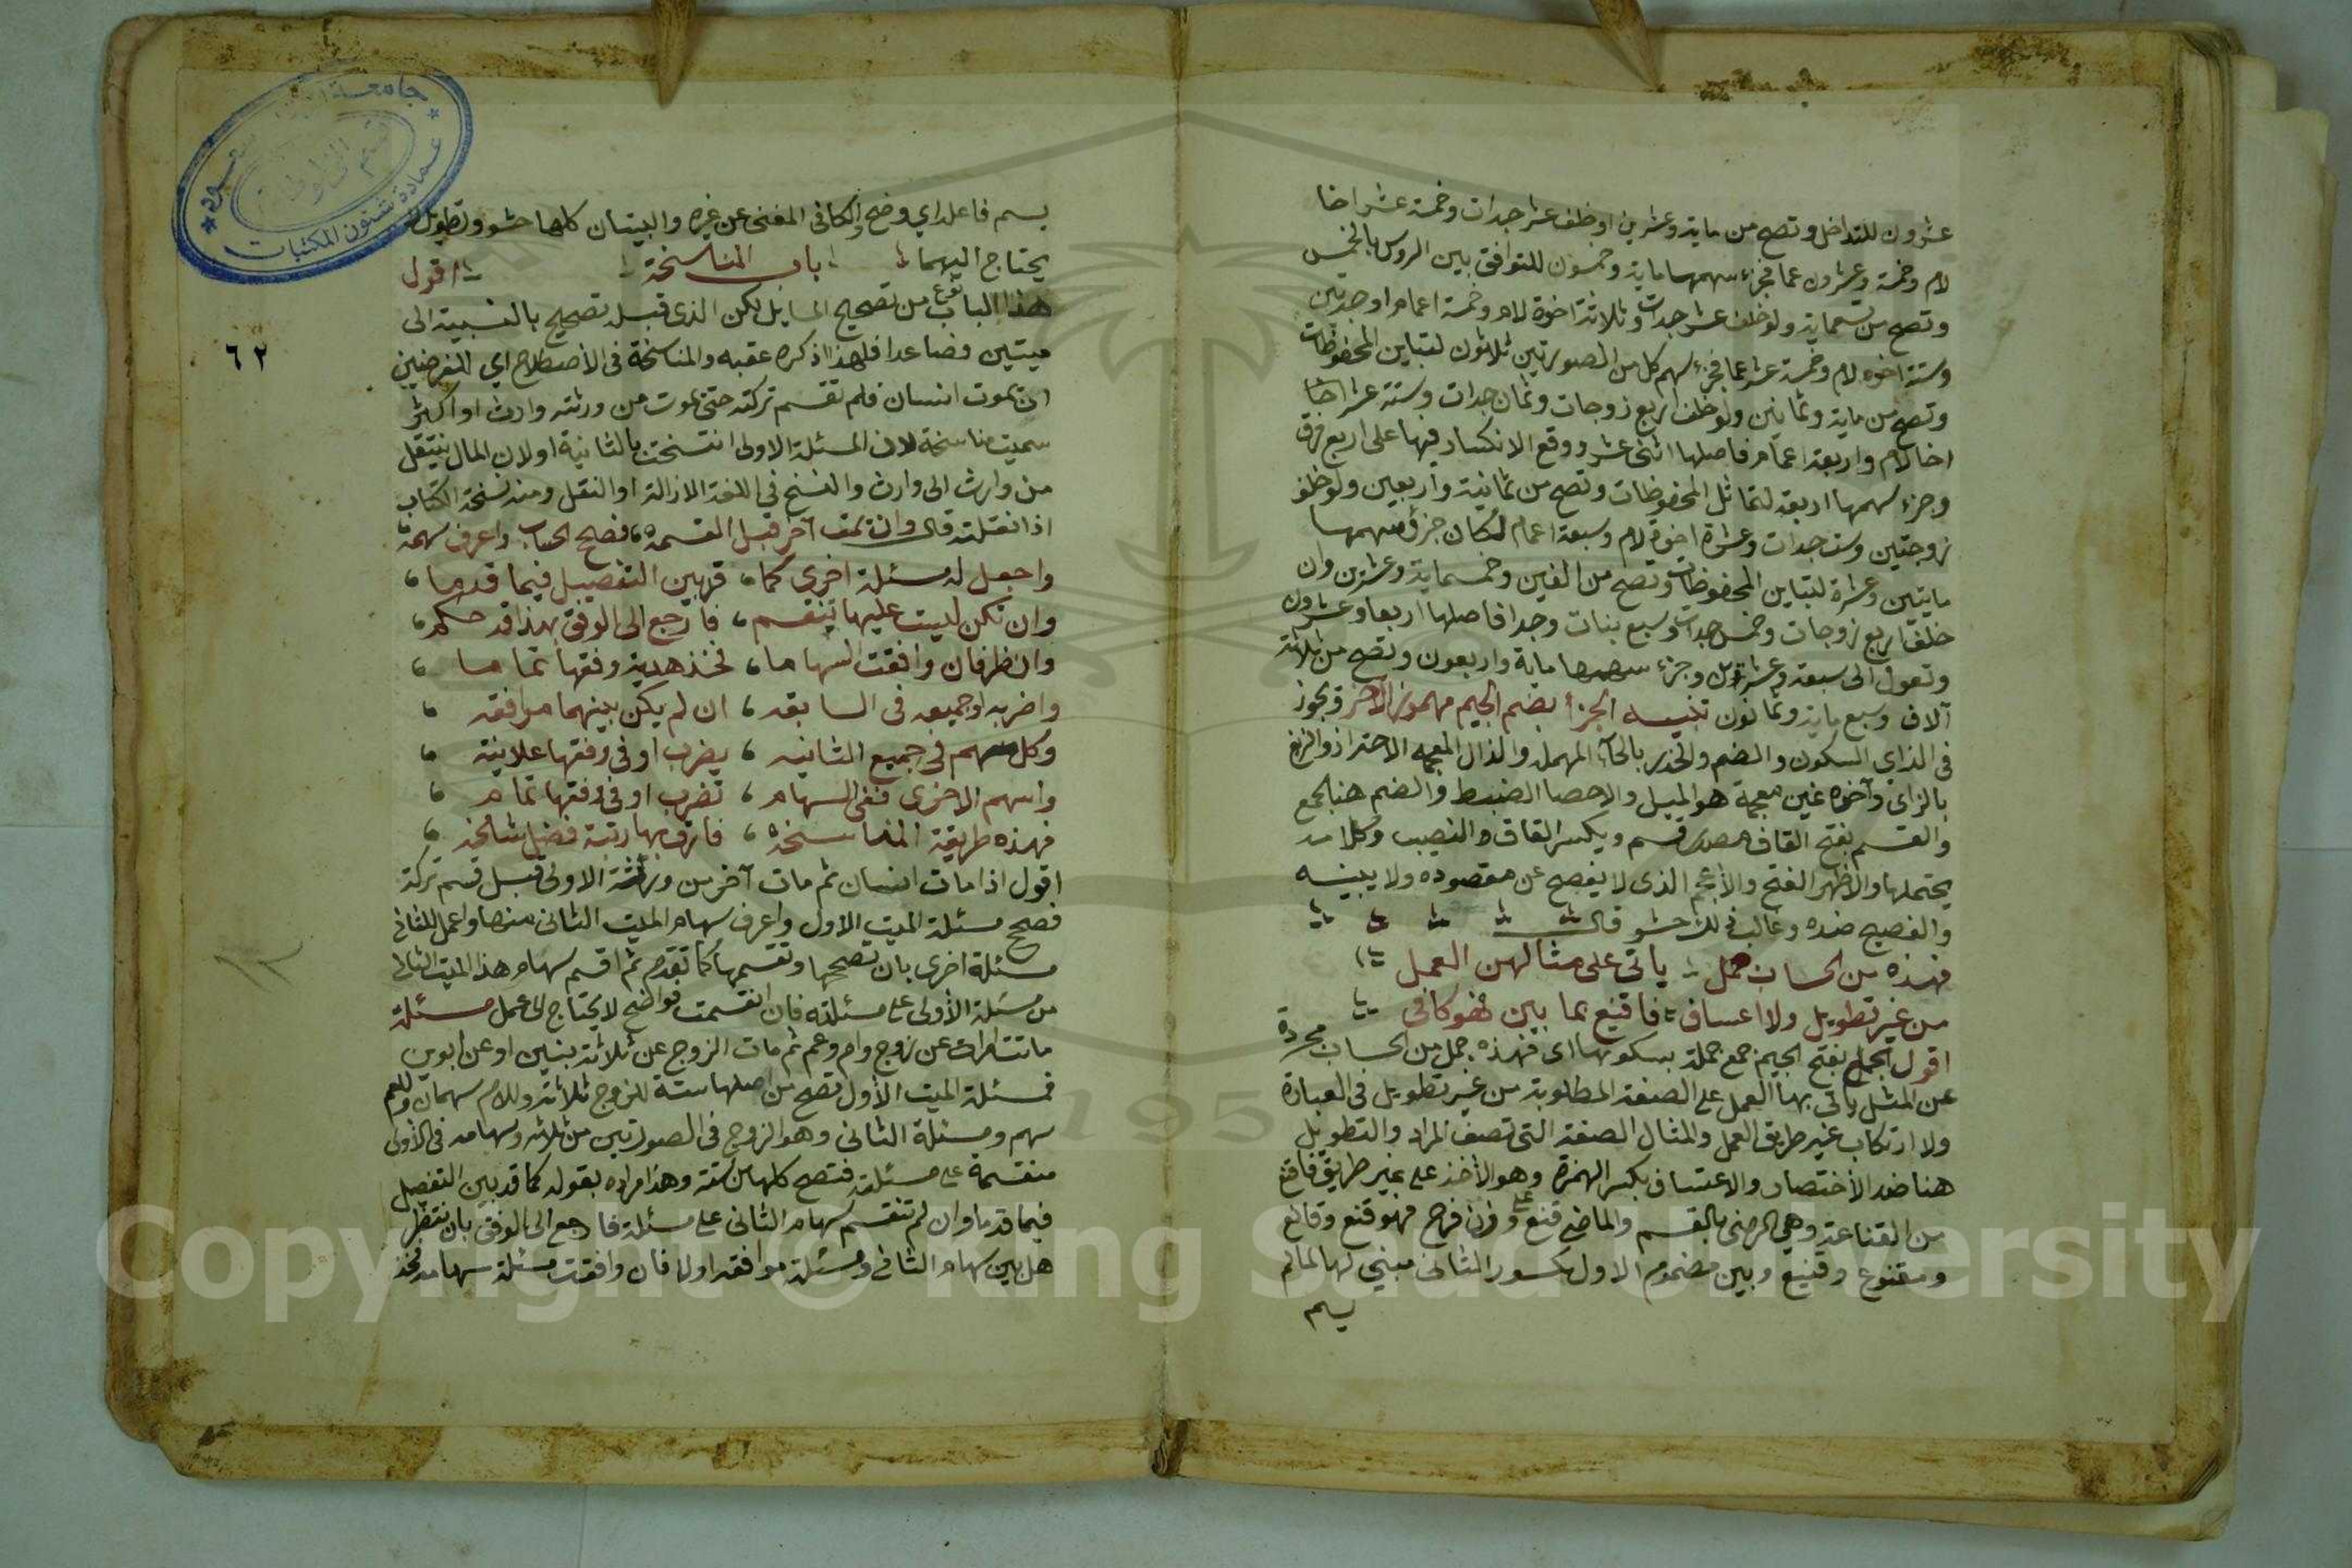 عشرون للتداخل وتصح من ماية وعشرين او خلف عشر جدات وخمسة عشر اخا
لام وخمسة وعشرون عما فجزء سهمها ماية وخمسون للتوافق بين الروس بالخمس
وتصح من تسعماية ولو خلف عشر جدات وثلاثة اخوة لام وخمسة اعمام او جدتين
وستة اخوه لام وخمسة عشر عما فجزء سهم كل من الصورتين ثلاثون لتباين المحفوظات
وتصح من ماية وثمانين ولو خلف اربع زوجات وثمان جدات وستة عشر اخا
اخا لام واربعة اعمام فاصلها اثنى عشر ووقع الانكسار فيها على اربع فرق
وجزء سهمها اربعة لتماثل المحفوظات وتصح من ثمانية واربعين ولو خلف
زوجتين وست جدات وعشرة اخوة لام وسبعة اعمام لكان جزؤ سهمها
مايتين وعشرة لتباين المحفوظات وتصح من الفين وخمسماية وعشرين وان
خلف اربع زوجات وخمس جدات وسبع بنات وجدا فاصلها اربعا وعشرون
وتعول الى سبعة وعشرين وجزء سهمها ماية واربعون وتصح من ثلاثة
آلاف وسبع ماية وثمانون تنبيه الجزأ بضم الجيم مهموز الآخر ويجوز
في الزاي السكون والضم والحذر بالحآء المهملة والذال المعجمه الاحتراز والزيغ
بالزاي وآخره غين معجمة هو الميل والاحصا الضبط والضم هنا الجمع
والقسم بفتح القاف مصدر قسم وبكسر القاف النصيب وكلامه
يحتملها والاظهر الفتح والاعجم الذى لا يفصح عن مقصوده ولا يبينه
والفصيح ضده وغالب ذلك حشو قال
فهذه من الحساب جمل ياتى على مثالهن العمل
من غير تطويل ولا اعساف فاقنع بما بين فهو كافى
اقول الجمل بفتح الجيم جمع جملة بسكونها اى فهذه جمل من الحساب مجردة
عن المثل ياتى بها العمل على الصفة المطلوبة من غير تطويل فى العبارة
ولا ارتكاب غير طريق العمل والمثال الصفة التى تصف المراد والتطويل
هنا ضد الاختصار والاعتساف بكسر الهمزة وهو الأخذ على غير طريق فاقنع
من القناعة وهي الرضى بالقسم والماضي قنع على وزن فرح فهو قنع وقانع
ومقنوع وقنيع وبين مضموم الاول مكسور الثانى مبني لها لما لم
يسم
يسم فاعله اي وضح والكافى المغنى عن غيره والبيتان كلها حشو وتطويل لا
يحتاج اليهما باب المناسخة اقول
هذا الباب نوع من تصحيح المسايل لكن الذى قبله تصحيح بالنسبة الى
ميتين فصاعدا فلهذا ذكره عقبه والمناسخة فى الاصطلاح اي الفرضيين
ان يموت انسان فلم تقسم تركته حتى يموت من ورثته وارث او اكثر
سميت مناسخة لان المسئلة الاولى انتسخت بالثانية او لان المال ينتقل
من وارث الى وارث والنسخ في اللغة الازالة او النقل ومنه نسخة الكتاب
اذا نقلته قال وان يمت آخر قبل القسمة فصحح الحساب واعرف سهمه
واجعل له مسئلة اخرى كما قد بين التفصيل فيما قدما
وان تكن ليست عليها تنقسم فارجع الى الوفق بهذا قد حكم
وانظر فان وافقت السهاما فخذ هديت وفقها تماما
واضربه او جميعه فى السابقه ان لم يكن بينهما موافقه
وكل سهم في جميع الثانيه يضرب او فى وفقها علانية
واسهم الاخرى ففى السهام تضرب او في وفقها تمام
فهذه طريقة المناسخة فارق بها رتبة فضل شامخه
اقول اذا مات انسان ثم مات آخر من ورثة الاولى قبل قسم تركة
فصحح مسئلة الميت الاول واعرف سهام الميت الثانى منها واعمل للثاني
مسئلة اخرى بان تصححها وتقسمها كما تقدم ثم اقسم سهام هذا الميت الثانى
من مسئلة الأولى على مسئلته فان انقسمت فواضح لا يحتاج الى عمل مسئلة
ماتت امراة عن زوج وام وعم ثم مات الزوج عن ثلاثة بنين او عن ابوين
فمسئلة الميت الأول تصح من اصلها ستة للزوج ثلاثة وللام سهمان وللعم
سهم ومسئلة الثانى وهو الزوج فى الصورتين من ثلاثه وسهامه فى الأولى
منقسمة على مسئلته فتصح كلها من ستة وهذا مراده بقوله كما قد بين التفصيل
فيما قدما وان لم تنقسم سهام الثانى على مسئلة فارجع الى الوفق بان تنظر
هل بين سهام الثانى ومسئلة موافقه اولا فان وافقت مسئلة سهامه فخذ
٦٢
عمادة شئون المكتبات